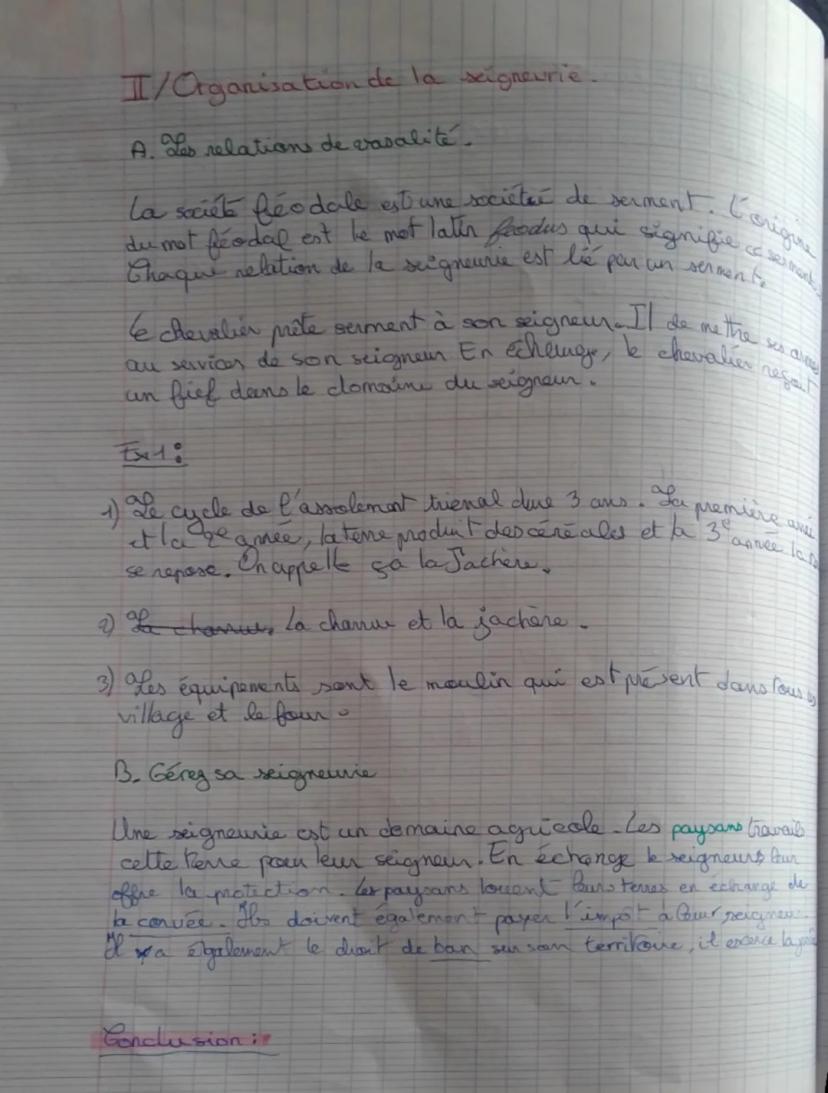 II/Organisation de la seigneurie.
A. Les relations de vasalité.
La société féodale est une société de serment. L'origine
du mot féodal est le mot latin foedus qui signifie serment.
Chaque relation de la seigneurie est lié par un serment.
Le chevalier prête serment à son seigneur. Il de mettre ses armes
au services de son seigneur En échange, le chevalier reçoit
un fief dans le domaine du seigneur.
Ex 1:
1) Le cycle de l'assolement trienal dure 3 ans. La première année
et la 2e année, la terre produit des céréales et la 3e année la
se repose. On appelle ça la Jachère.
2) La charrue, La charrue et la jachère.
3) Les équipements sont le moulin qui est présent dans tous les
village et le four.
B. Gérez sa seigneurie
Une seigneurie est un domaine agricole. Les paysans travails
cette terre pour leur seigneur. En échange le seigneurs leur
offre la protection. Les paysans louent leurs terres en échange de
la corvée. Ils doivent également payer l'impôt à leur seigneur.
Il a également le droit de ban sur son territoire, il exerce la
Conclusion: